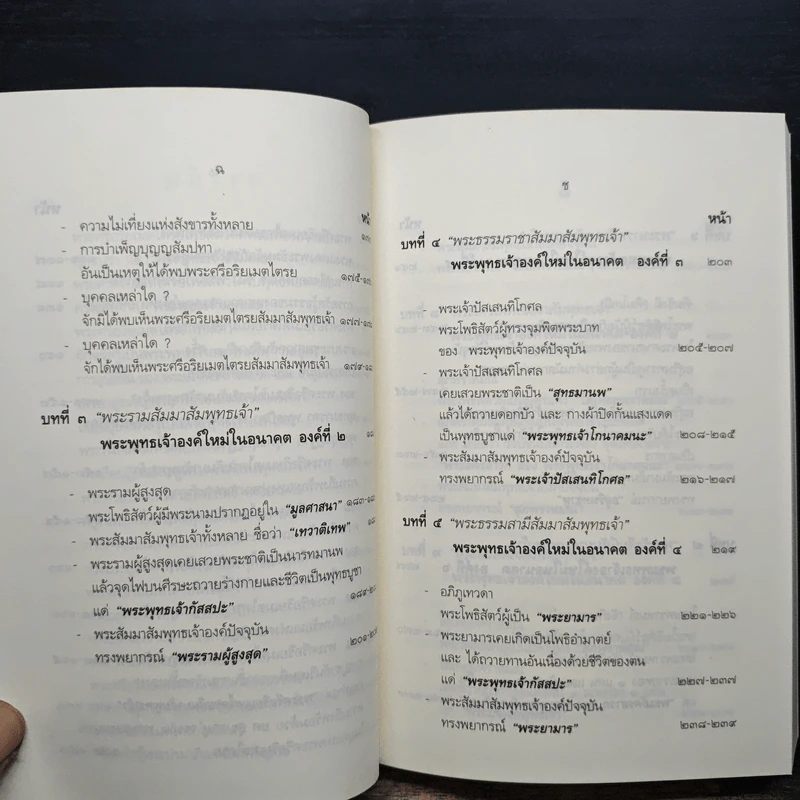 ฉ
หน้
- ความไม่เที่ยงแห่งสังขารทั้งหลาย
- การบำเพ็ญบุญญสัมปทา
อันเป็นเหตุให้ได้พบพระศรีอริยเมตไตรย ๑๗๕-๑๗
- บุคคลเหล่าใด ?
จักมิได้พบเห็นพระศรีอริยเมตไตรยสัมมาสัมพุทธเจ้า ๑๗๗-๑๗
- บุคคลเหล่าใด ?
จักได้พบเห็นพระศรีอริยเมตไตรยสัมมาสัมพุทธเจ้า ๑๗๙-๑๘
บทที่ ๓ "พระรามสัมมาสัมพุทธเจ้า"
พระพุทธเจ้าองค์ใหม่ในอนาคต องค์ที่ ๒ ๑๘
- พระรามผู้สูงสุด
พระโพธิสัตว์ผู้มีพระนามปรากฏอยู่ใน "มูลศาสนา" ๑๘๓-๑๘
- พระสัมมาสัมพุทธเจ้าทั้งหลาย ชื่อว่า "เทวาติเทพ" ๑๘
- พระรามผู้สูงสุดเคยเสวยพระชาติเป็นนารทมานพ
แล้วจุดไฟบนศีรษะถวายร่างกายและชีวิตเป็นพุทธบูชา
แด่ "พระพุทธเจ้ากัสสปะ" ๑๘๙-๒
- พระสัมมาสัมพุทธเจ้าองค์ปัจจุบัน
ทรงพยากรณ์ "พระรามผู้สูงสุด" ๒๐๑-๒
ช
หน้า
บทที่ ๔ "พระธรรมราชาสัมมาสัมพุทธเจ้า"
พระพุทธเจ้าองค์ใหม่ในอนาคต องค์ที่ ๓ ๒๐๓
- พระเจ้าปัสเสนทิโกศล
พระโพธิสัตว์ผู้ทรงจุมพิตพระบาท
ของ พระพุทธเจ้าองค์ปัจจุบัน ๒๐๕-๒๐๗
- พระเจ้าปัสเสนทิโกศล
เคยเสวยพระชาติเป็น "สุทธมานพ"
แล้วได้ถวายดอกบัว และ กางผ้าปิดกั้นแสงแดด
เป็นพุทธบูชาแด่ "พระพุทธเจ้าโกนาคมนะ" ๒๐๘-๒๑๕
- พระสัมมาสัมพุทธเจ้าองค์ปัจจุบัน
ทรงพยากรณ์ "พระเจ้าปัสเสนทิโกศล" ๒๑๖-๒๑๗
บทที่ ๕ "พระธรรมสามีสัมมาสัมพุทธเจ้า"
พระพุทธเจ้าองค์ใหม่ในอนาคต องค์ที่ ๔ ๒๑๙
- อภิภูเทวดา
พระโพธิสัตว์ผู้เป็น "พระยามาร" ๒๒๑-๒๒๖
- พระยามารเคยเกิดเป็นโพธิอำมาตย์
และ ได้ถวายทานอันเนื่องด้วยชีวิตของตน
แด่ "พระพุทธเจ้ากัสสปะ" ๒๒๗-๒๓๗
- พระสัมมาสัมพุทธเจ้าองค์ปัจจุบัน
ทรงพยากรณ์ "พระยามาร" ๒๓๘-๒๓๙